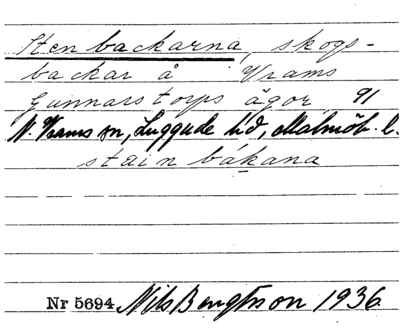 Stenbackarna, skogs-
backar å Vrams
Gunnarstorps ägor 91
N. Vrams sn, Luggude hd, Malmöh. l.
stain bákana
Nr 5694 Nils Bengtsson 1936